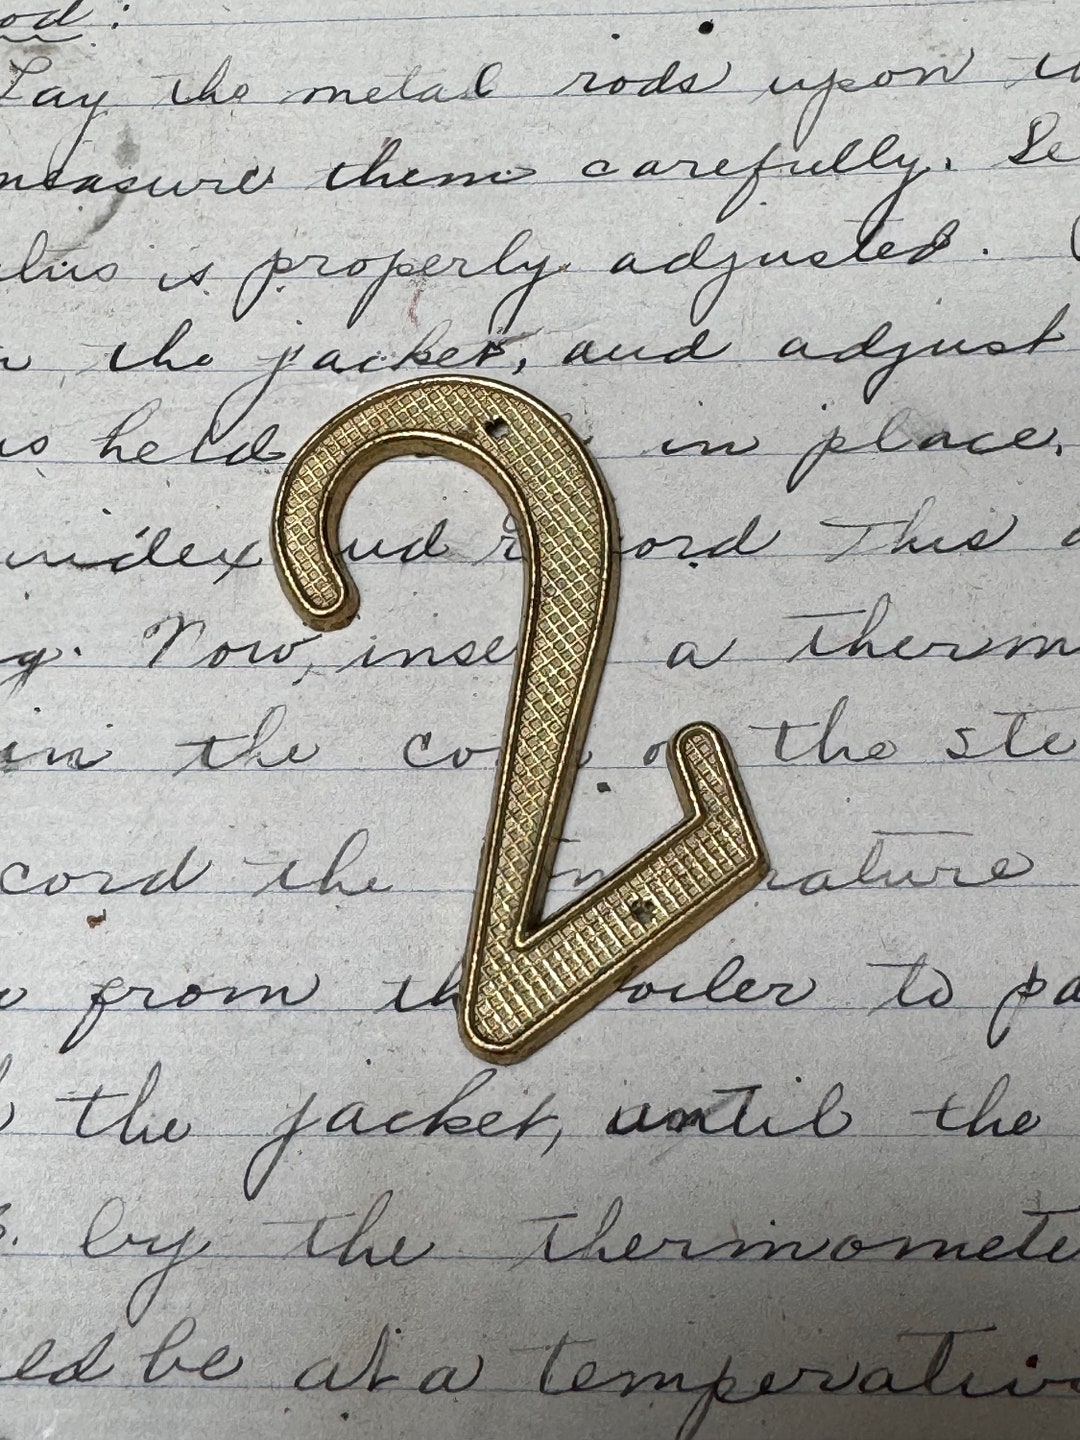 Lay the metal rods upon
measure them carefully. Se
is properly adjusted.
the jacket, and adjust
held in place.
index and record This
Now, inse a therm
in the co o the ste
cord the rature
from th oiler to pa
the jacket, until the
by the thermomete
ed be at a temperatu
2